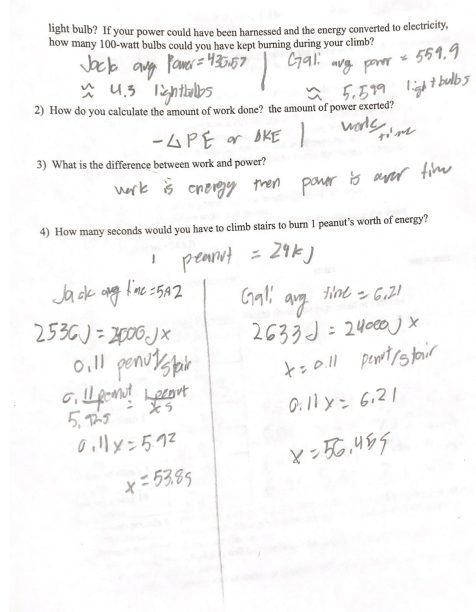 light bulb? If your power could have been harnessed and the energy converted to electricity,
how many 100-watt bulbs could you have kept burning during your climb?
Jack avg Power = 430.57 | Gali avg power = 559.9
≈ 4.3 lightbulbs ≈ 5.599 lightbulbs
2) How do you calculate the amount of work done? the amount of power exerted?
-△PE or △KE | work ÷ time
3) What is the difference between work and power?
work is energy then power is over time
4) How many seconds would you have to climb stairs to burn 1 peanut's worth of energy?
1 peanut = 24kJ
Jack avg time = 5.92
2536J = 24000J x
0.11 penut/stair
0.11 penut / 5.92s = 1 penut / x s
0.11x = 5.92
x = 53.8s
Gali avg time = 6.21
2633J = 24000J x
x = 0.11 penut/stair
0.11 x = 6.21
x = 56.45s